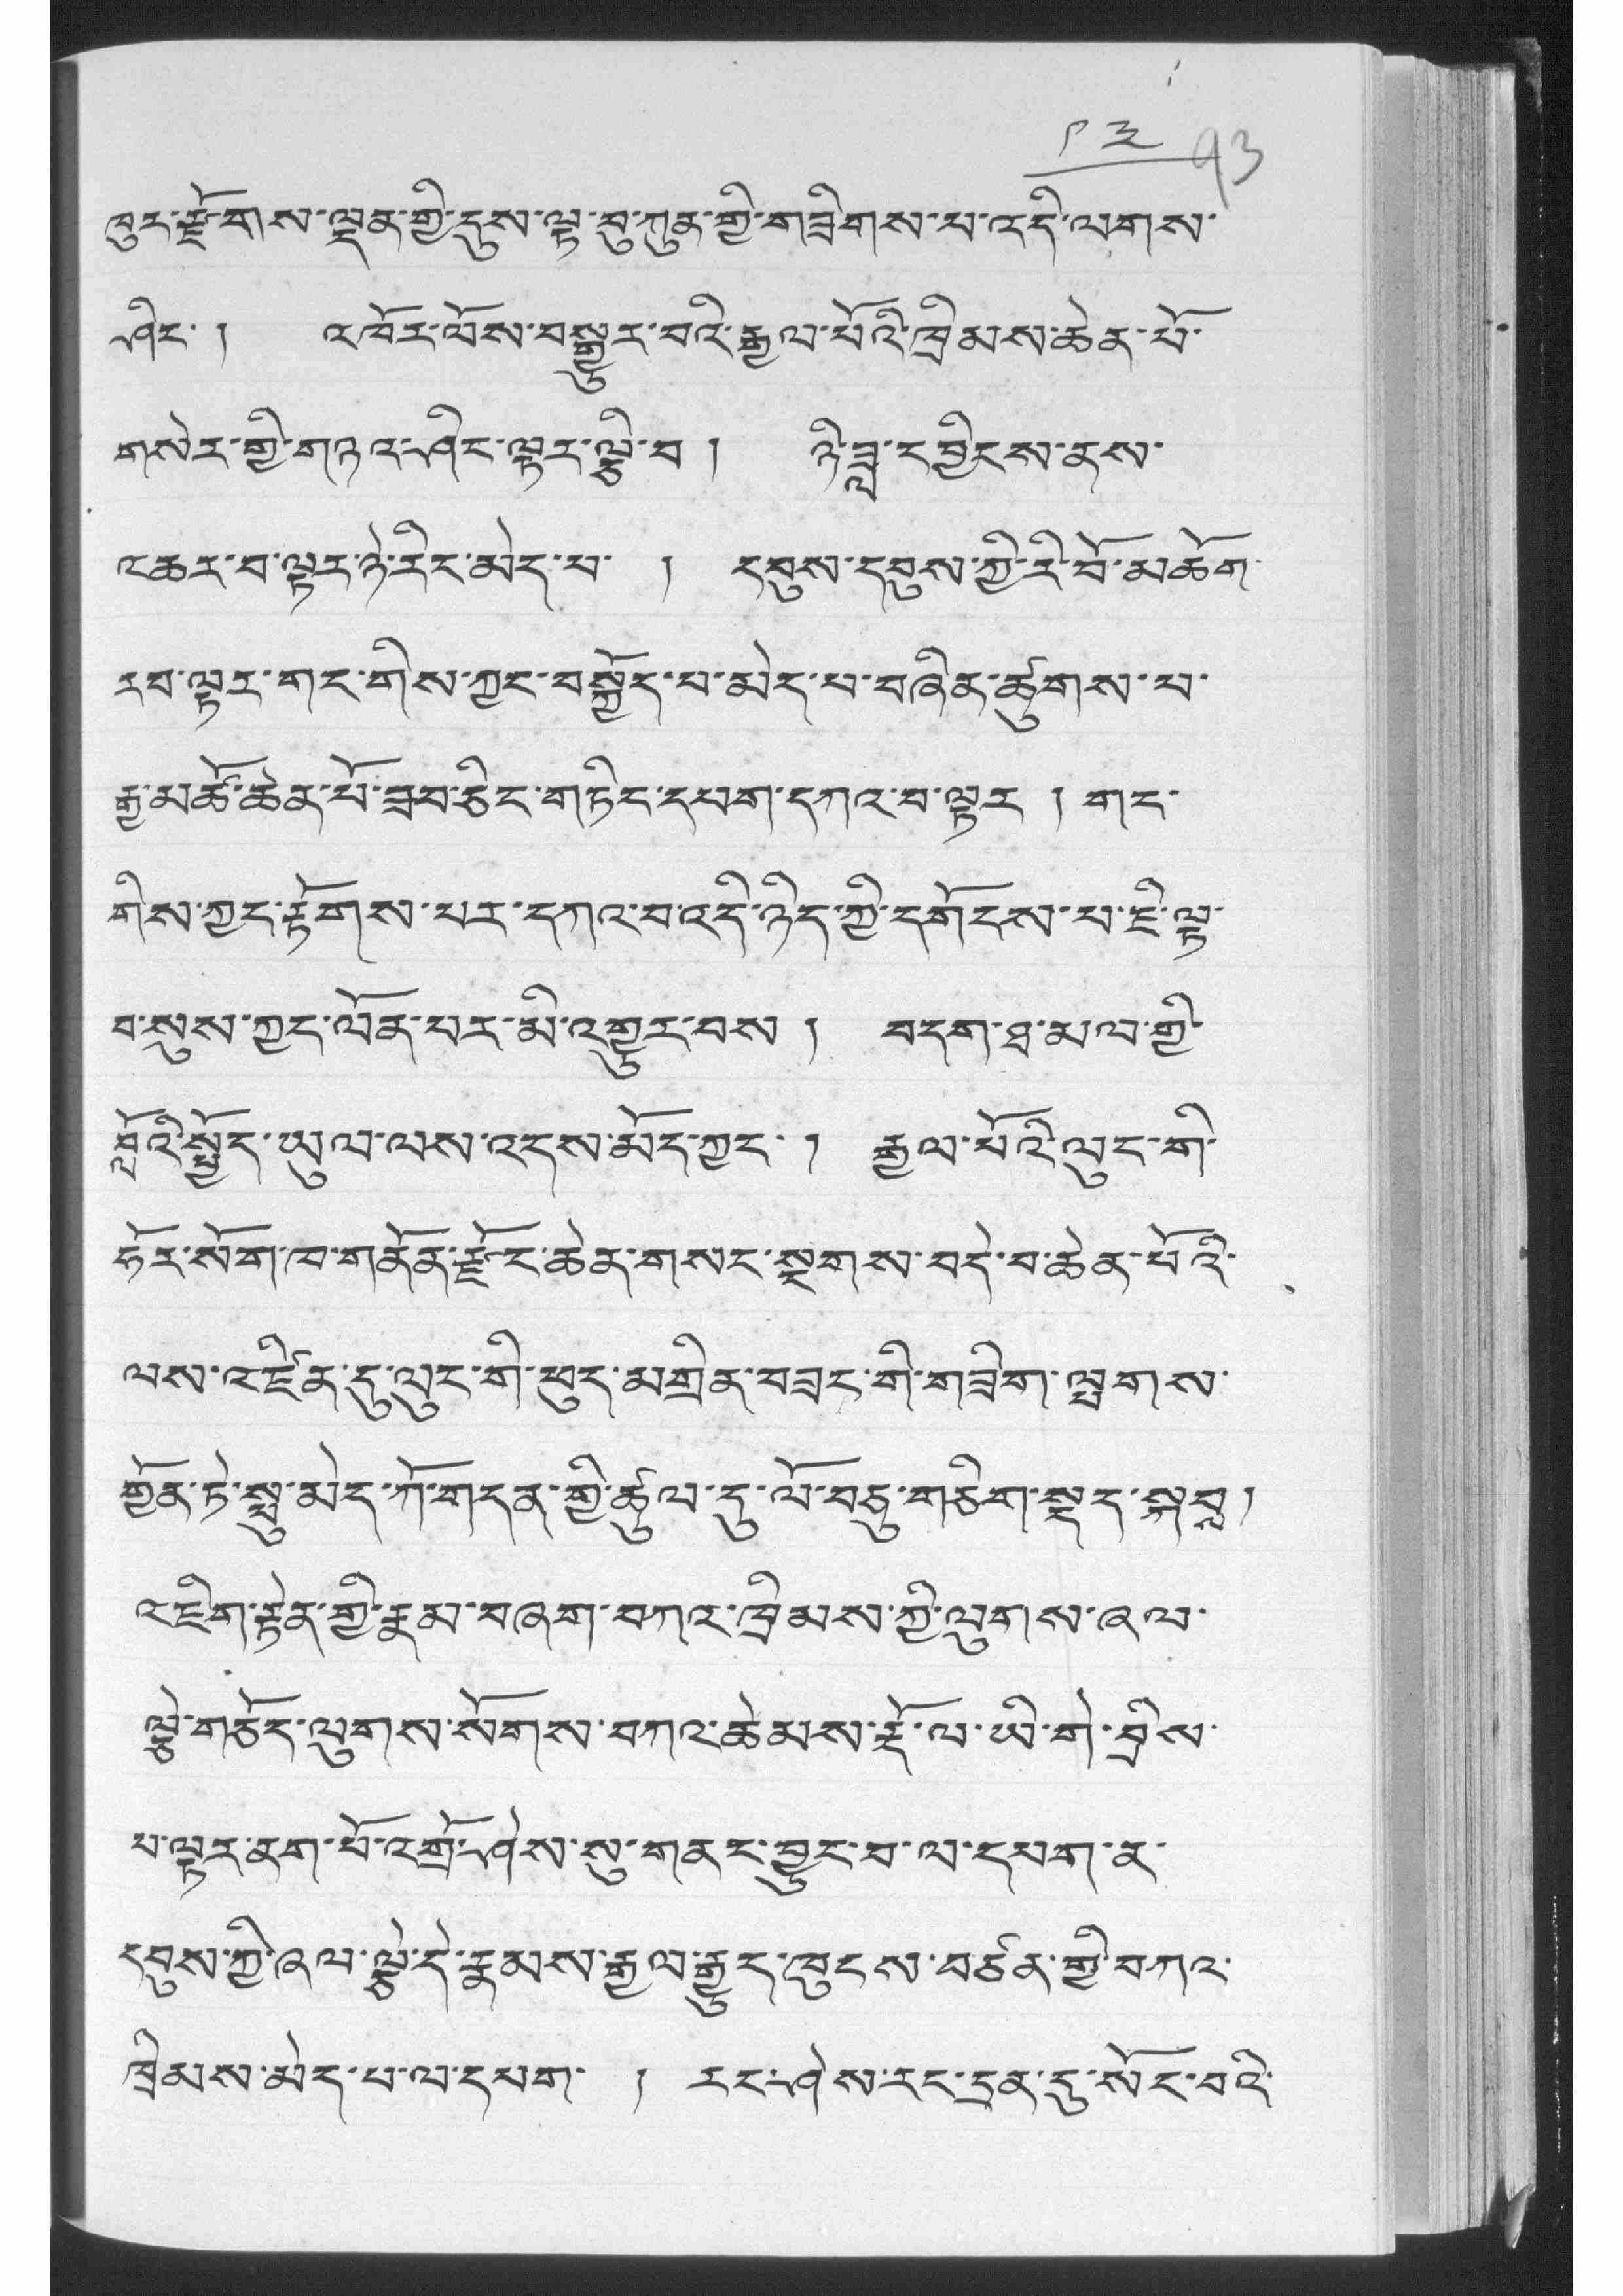 ༡༣ 93
ཁུར་རྫོགས་ལྡན་གྱི་དུས་ལྟ་བུ་ཀུན་གྱི་གཟིགས་པ་འདི་ལགས་
ཤིང་། འཁོར་ལོས་བསྒྱུར་བའི་རྒྱལ་པོའི་ཁྲིམས་ཆེན་པོ་
གསེར་གྱི་གཉའ་ཤིང་ལྟར་ལྕི་བ། ཉི་ཟླ་དབྱིངས་ནས་
འཆར་བ་ལྟར་ཉེ་རིང་མེད་པ་ ། དབུས་དབུས་ཀྱི་རི་བོ་མཆོག་
རབ་ལྟར་གང་གིས་ཀྱང་བསྐྱོད་པ་མེད་པ་བཞིན་ཚུགས་པ་
རྒྱ་མཚོ་ཆེན་པོ་ཟབ་ཅིང་གཏིང་དཔག་དཀའ་བ་ལྟར །གང་
གིས་ཀྱང་རྟོགས་པར་དཀའ་བ་འདི་ཉིད་ཀྱི་དགོངས་པ་ཇི་ལྟ་
བ་སུས་ཀྱང་ལོན་པར་མི་འགྱུར་བས། བདག་ཐ་མལ་གྱི་
བློའི་སྤྱོད་ཡུལ་ལས་འདས་མོད་ཀྱང་། རྒྱལ་པོའི་ལུང་གི་
ཧོར་སོག་ཁ་གནོན་རྫོང་ཆེན་གསང་སྔགས་བདེ་བ་ཆེན་པོའི་
ལས་འཛིན་དུ་ལུང་གི་ཁུད་མགྲིན་བཟང་གི་གཟིག་ལྤགས་
གྱོན་ཏེ་སླུ་མེད་ཀོ་གདན་གྱི་ཚུལ་དུ་ལོ་བཅུ་གཅིག་སྡད་སྐབ།
འཇིག་རྟེན་གྱི་རྣམ་བཞག་བཀའ་ཁྲིམས་ཀྱི་ལུགས་ཞལ་
ལྕེ་གཅོད་ལུགས་སོགས་བཀའ་ཆེམས་རྡོ་ལ་ཡི་གེ་བྲིས་
པ་ལྟར་ནག་པོ་འགྲོ་ཤེས་སུ་གནང་བྱུང་བ་ལ་དཔག་ན་
དབུས་ཀྱི་ཞལ་ལྕེ་དེ་རྣམས་རྒྱལ་རྒྱུད་ཁུངས་བཙན་གྱི་བཀའ་
ཁྲིམས་མེད་པ་ལ་དཔག་ ། རང་ཤེས་རང་དྲན་དུ་སོང་བའི་